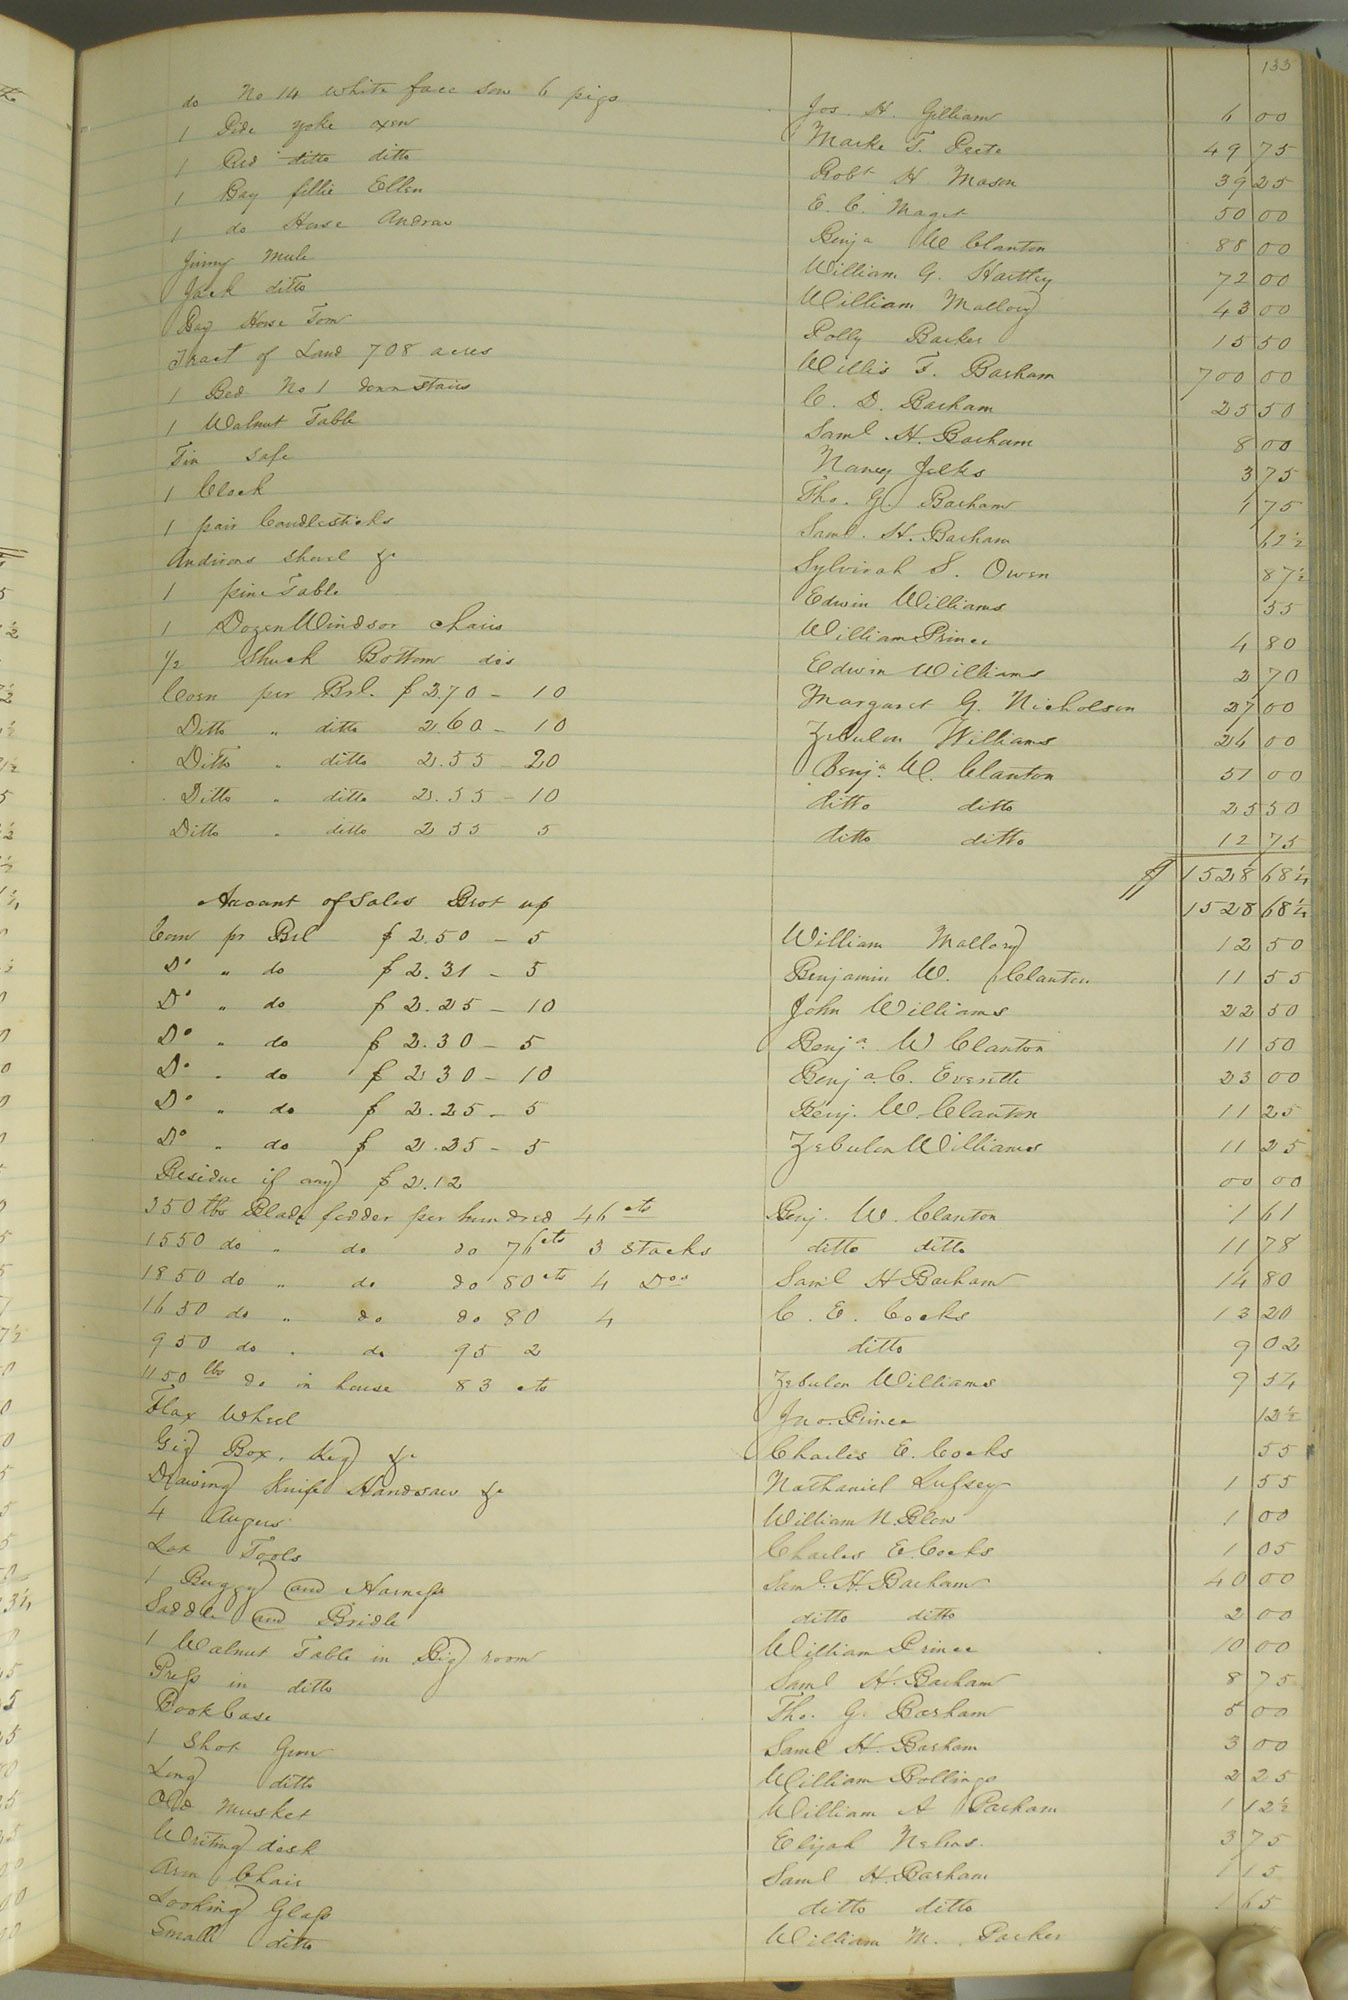 133
do No 14 White face Sow 6 pigs Jos. H. Gilliam 6 00
1 Pide yoke oxen Marke T. Peete 49 75
1 Red ditto ditto Robt H Mason 39 25
1 Bay fillie Ellen E. C. Maget 50 00
1 do Horse Andrew Benja W Clanton 88 00
Jinny Mule William G. Hartley 72 00
Jack ditto William Mallory 43 00
Bay Horse Tom Polly Barker 15 50
Tract of Land 708 acres Willis T. Barham 700 00
1 Bed No 1 down stairs C. D. Barham 25 50
1 Walnut Table Saml. H. Barham 8 00
Tin Safe Nancy Jelks 3 75
1 Clock Tho. G. Barham 1 75
1 pair Candlesticks Saml. H. Barham 62½
Andirons Shovel &c Sylvirah S. Owen 87½
1 pine Table Edwin Williams 55
1 Dozen Windsor chairs William Prince 4 80
½ Shuck Bottom do Edwin Williams 2 70
Corn per Brl. $ 2.70 - 10 Margaret G. Nicholson 27 00
Ditto " ditto 2.60 - 10 Zebulon Williams 26 00
Ditto " ditto 2.55 - 20 Benja. W. Clanton 51 00
Ditto " ditto 2.55 - 10 ditto ditto 25 50
Ditto " ditto 2 55 5 ditto ditto 12 75
$ 1528 68¼
Account of Sales Brot up 1528 68¼
Corn pr Brl $ 2.50 - 5 William Mallory 12 50
Do " do $ 2.31 - 5 Benjamin W. Clanton 11 55
Do " do $ 2.25 - 10 John Williams 22 50
Do " do $ 2.30 - 5 Benja. W Clanton 11 50
Do " do $ 2 30 - 10 Benja. C. Everette 23 00
Do " do $ 2.25 - 5 Benj. W. Clanton 11 25
Do " do $ 2.25 - 5 Zebulon Williams 11 25
Residue if any $ 2.12 00 00
350 lbs Blade fodder per hundred 46 cts Benj. W. Clanton 1 61
1550 do " do do 76 cts 3 Stacks ditto ditto 11 78
1850 do " do do 80 cts 4 Dos Saml H Barham 14 80
1650 do " do do 80 4 C. E. Cocks 13 20
950 do " do 95 2 ditto 9 02
1150 lbs do in house 83 cts Zebulon Williams 9 54
Flax Wheel Jno. Prince 12½
Gig Box, Keg &c Charles E. Cocks 55
Drawing Knife Handsaw &c Nathaniel Lufsey 1 55
4 Augers William N. Blow 1 00
Lot Tools Charles E. Cocks 1 05
1 Buggy and Harness Saml. H. Barham 40 00
Saddle and Bridle ditto ditto 2 00
1 Walnut Table in Big room William Prince 10 00
Press in ditto Saml H. Barham 8 75
Book Case Tho. G. Barham 5 00
1 Shot Gun Saml H. Barham 3 00
Long ditto William Rollings 2 25
Old Musket William A Parham 1 12½
Writing desk Elijah 3 75
Arm Chair Saml H. Barham 1 15
Looking Glass ditto ditto 1 65
Small ditto William M. Parker